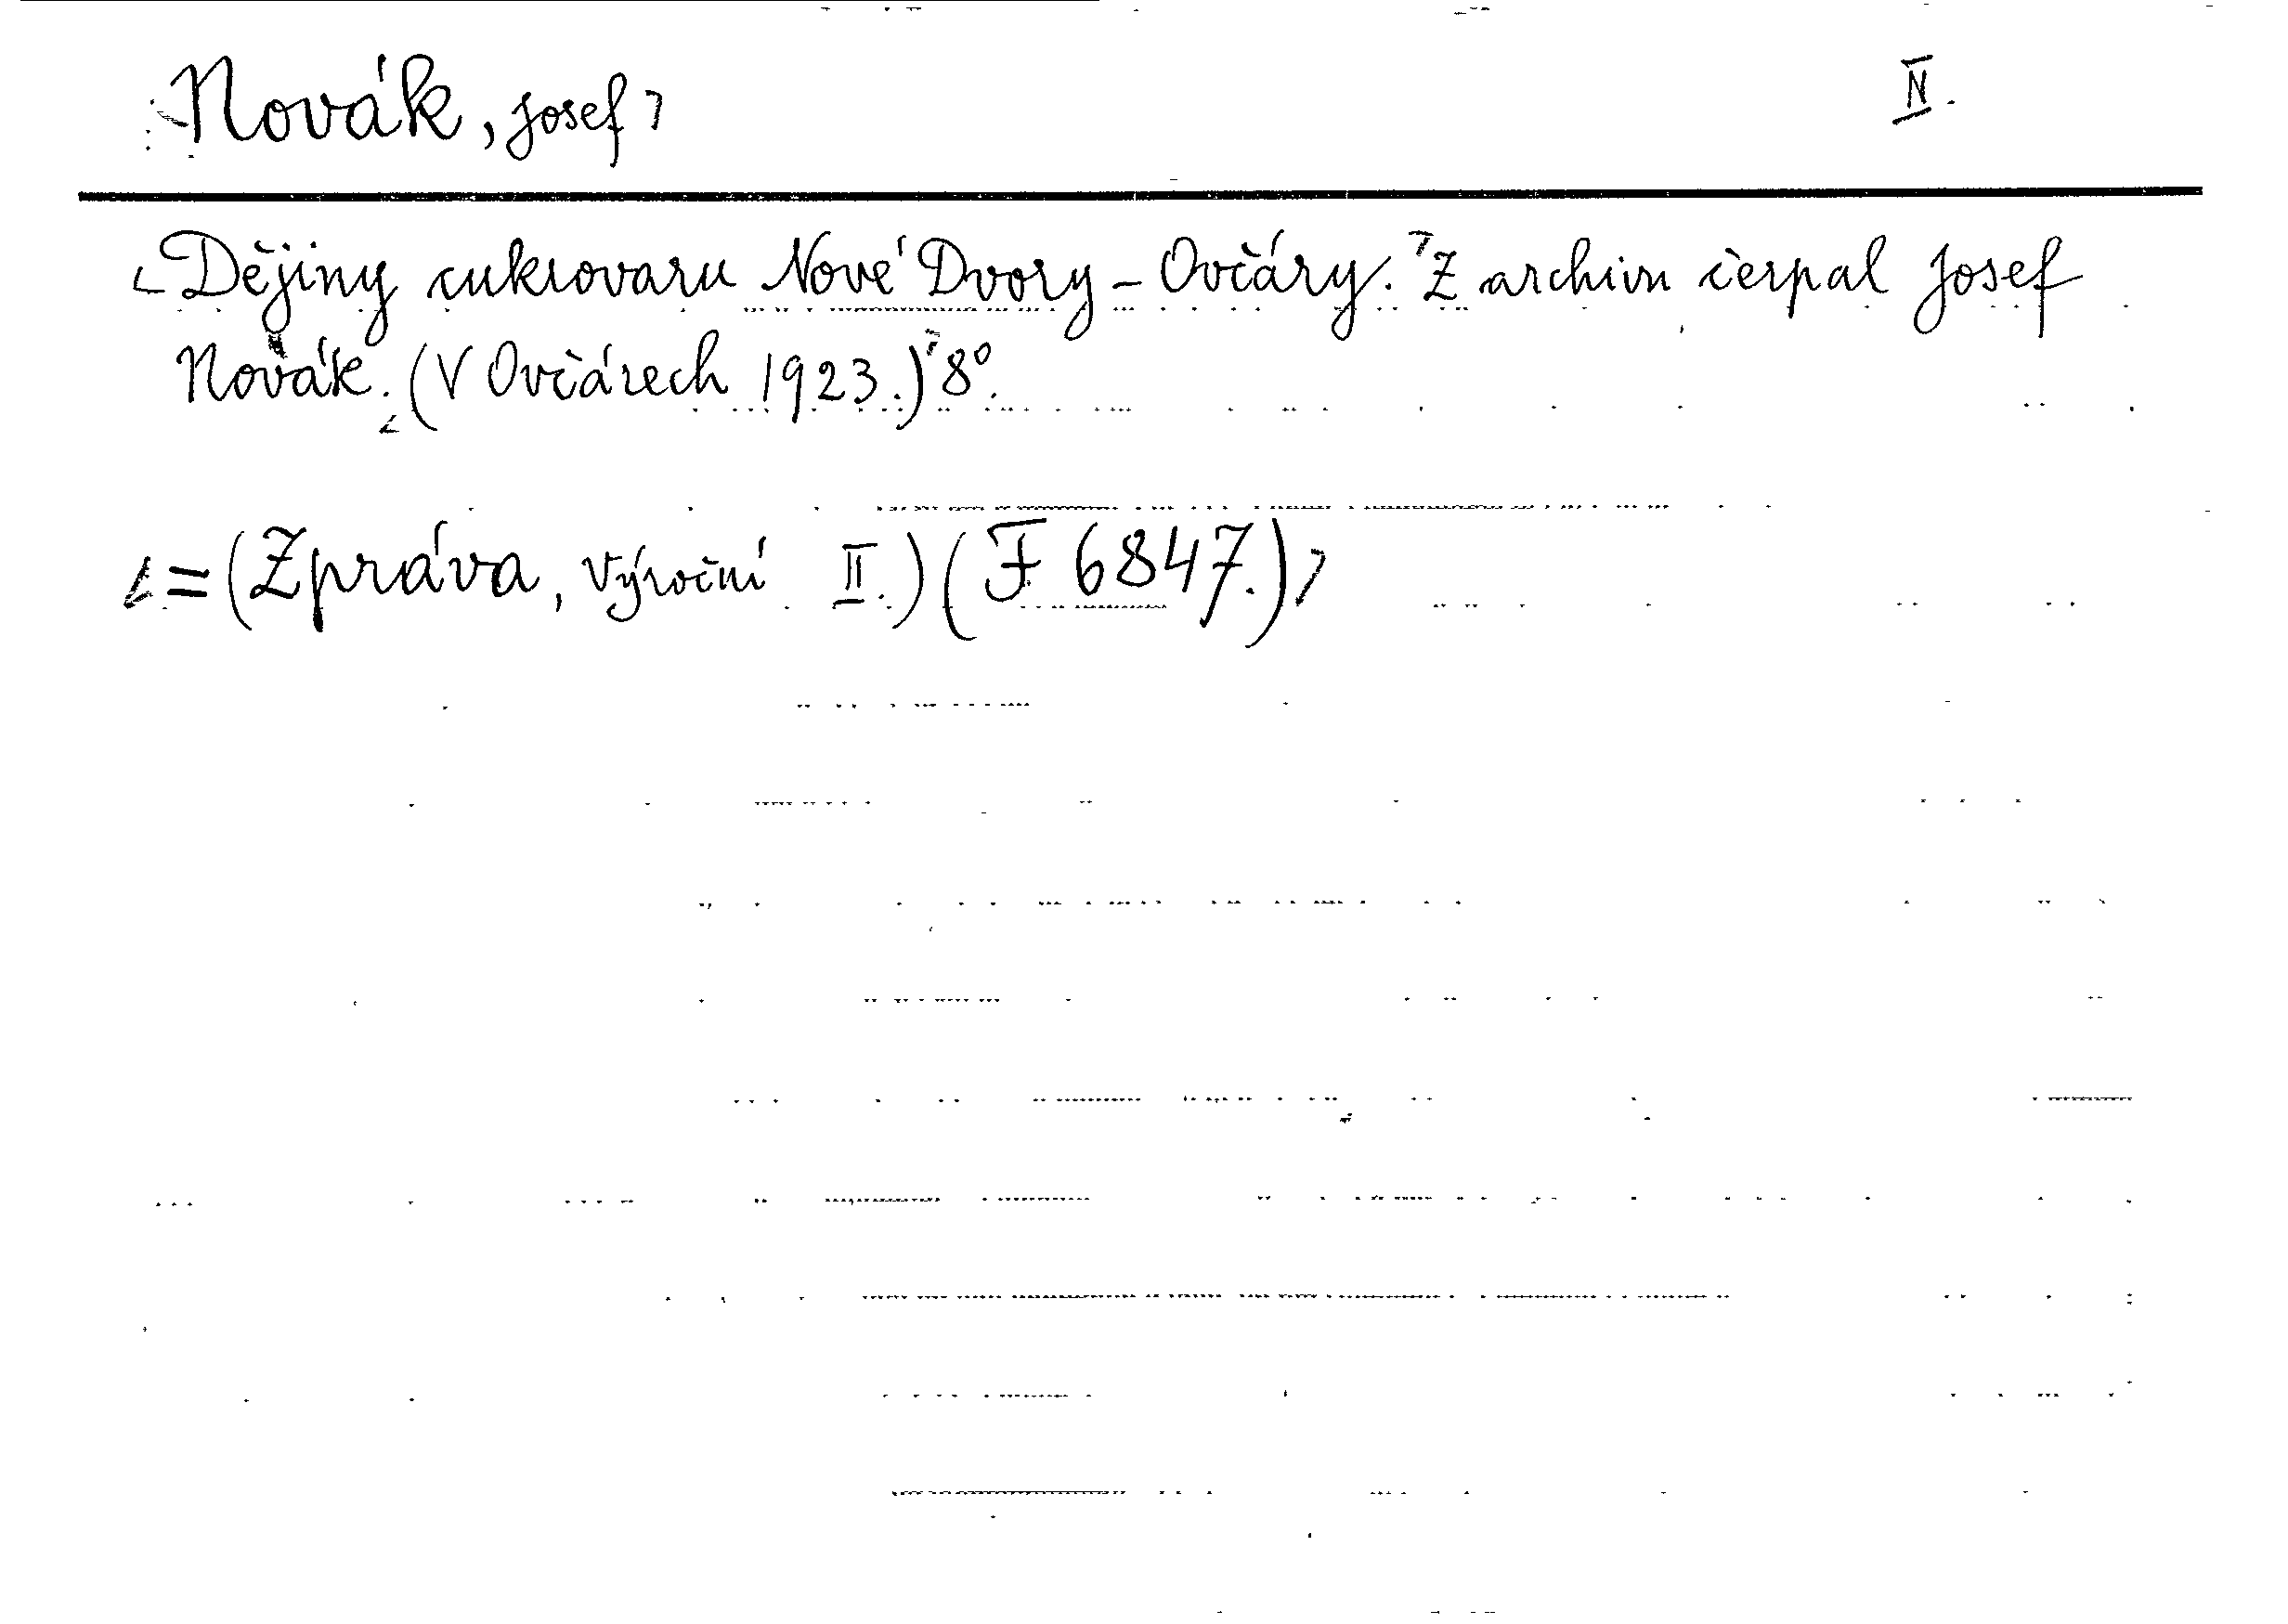 Novák, Josef IV.
Dějiny cukrovaru Nové Dvory - Ovčáry. Z archivu čerpal Josef
Novák. (V Ovčárech 1923.) 8°.
= (Zpráva, výroční II.) (F 6847.)